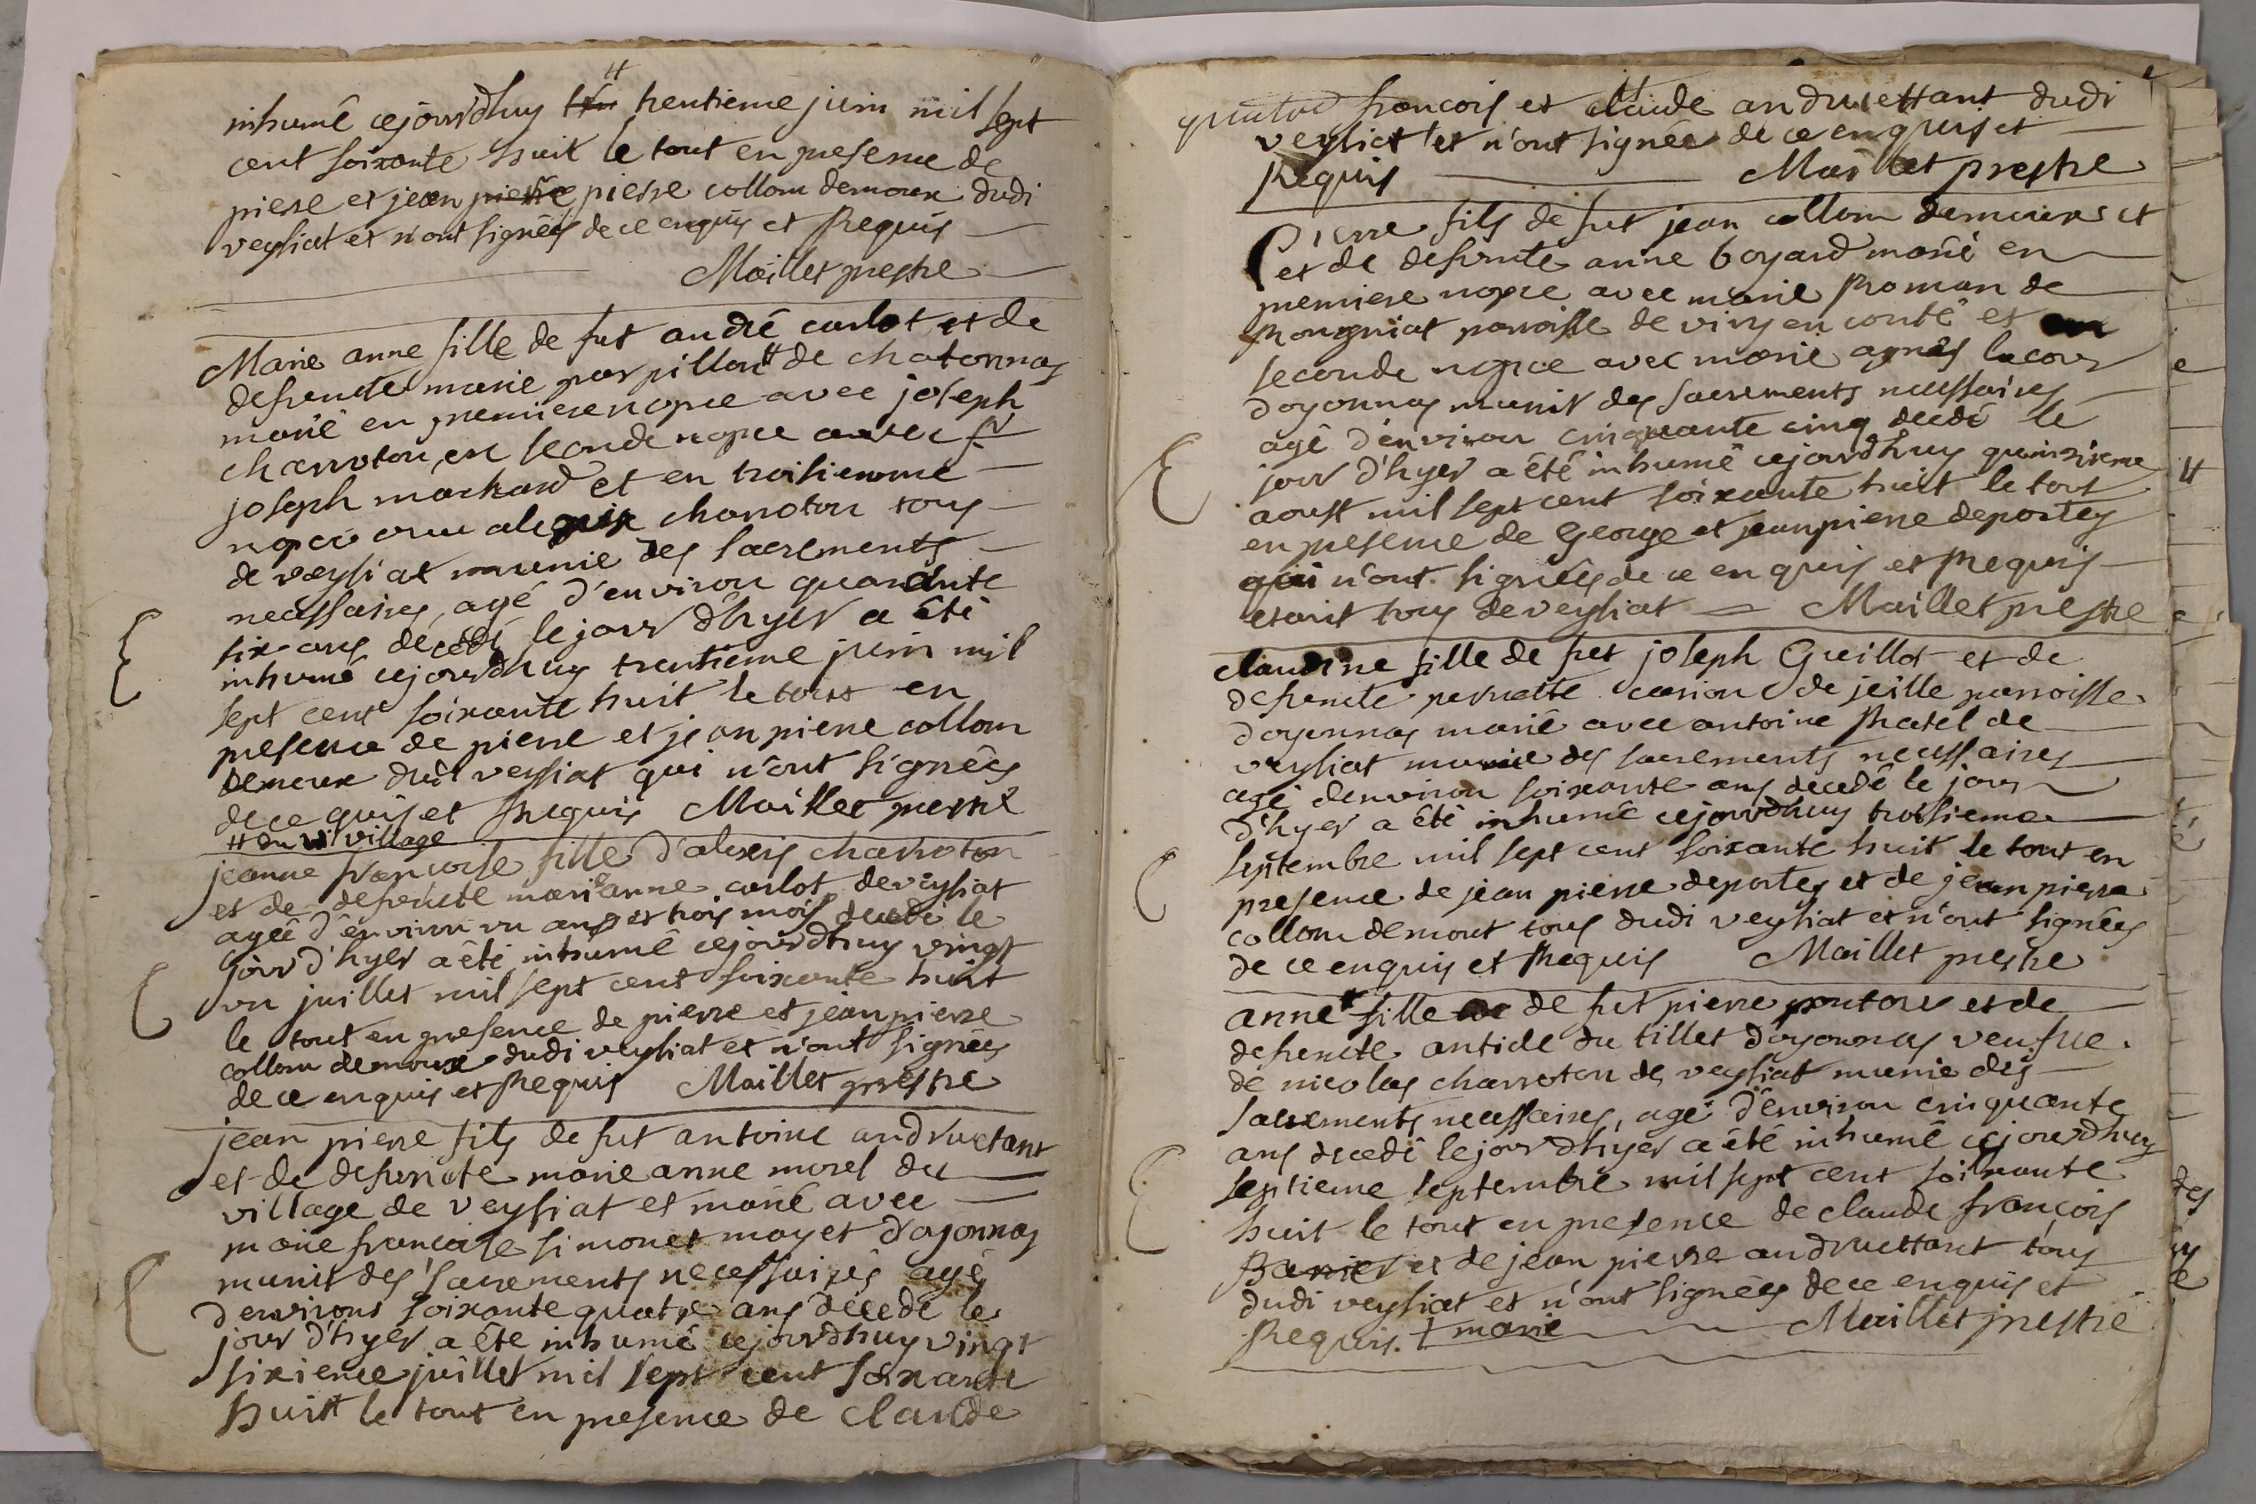 inhumé cejourdhuy trentieme juin mil sept
cent soixante huit le tout en presence de
pierre et jean pierre pierre collom demoux dudi
veysiat et n'ont signées de ce enquis et Requis
Maillet prestre
Marie anne fille de fut andré carlot et de
defuncte marie parpillon de chatonnas
marié en premiere nopce avec joseph
charroton, en seconde nopce avec fu
joseph markard et en troisiemme
nopce avec alexix charroton tous
de veysiat munie des sacrements
necessaires, agé d'environ quarante
six ans décédé le jour d'hyer a été
inhumé cejourdhuy trentieme juin mil
sept cent soixante huit le tout en
presence de pierre et jean pierre collom
demoux dudi veysiat qui n'ont signées
de ce quis et Requis Maillet prestre
# du village
jeanne francoise fille d'alexis charroton
et de defuncte marie anne carlot de veysiat
agée d'environ un ans et trois mois decedé le
jour d'hyer a été inhumé cejourdhuy vingt
un juillet mil sept cent soixante huit
le tout en presence de pierre et jean pierre
collom demoux dudi veysiat et n'ont signées
de ce enquis et Requis Maillet prestre
jean pierre fils de fut antoine andruetant
et de defuncte marie anne morel du
village de veysiat et marié avec
marie francoise simonet mayet d'oyonnas
munit des sacrements necessaires agé
d'environs soixante quatre ans décedé le
jour d'hyer a été inhumé cejourdhuy vingt
sixieme juillet mil sept cent soixante
huit le tout en presence de claude
francois et claude andruettant dudi
veysiat et n'ont signées de ce enquis et
Requis Maillet prestre
Pierre fils de fut jean collom demoux et
et de defunte anne boyard marié en
premiere nopce avec marie Roman de
Rougniat parroisse de viry en conté et
seconde nopce avec marie agnes lacour
d'oyonnas munit des sacrements necessaires
agé d'environ cinquante cinq decedé le
jour d'hyer a été inhumé cejourdhuy quinzieme
aoust mil sept cent soixante huit le tout
en presence de George et jean pierre deportes
qui n'ont signées de ce enquis et Requis
etant tous de veysiat Maillet prestre
claudine fille de fut joseph Guillot et de
defuncte pernette carion de jeille parroisse
d'oyonnas marié avec antoine Ratel de
veysiat munie des sacrements necessaires
agé d'environ soixante ans decedé le jour
d'hyer a été inhumé cejourdhuy troisieme
septembre mil sept cent soixante huit le tout en
presence de jean pierre deportes et de jean pierre
collom demout tous dudi veysiat et n'ont signées
de ce enquis et Requis Maillet prestre
anne + fille de fut pierre poutou et de
defuncte antide du tillet d'oyonnas veufve
de nicolas charroton de veysiat munie des
sacrements necessaires, agé d'environ cinquante
ans decedé le jour d'hyer a été inhumé cejourdhuy
septieme septembre mil sept cent soixante
huit le tout en presence de claude françois
Barrier et de jean pierre andruettant tous
dudi veysiat et n'ont signées de ce enquis et
Requis. + marie Maillet prestre